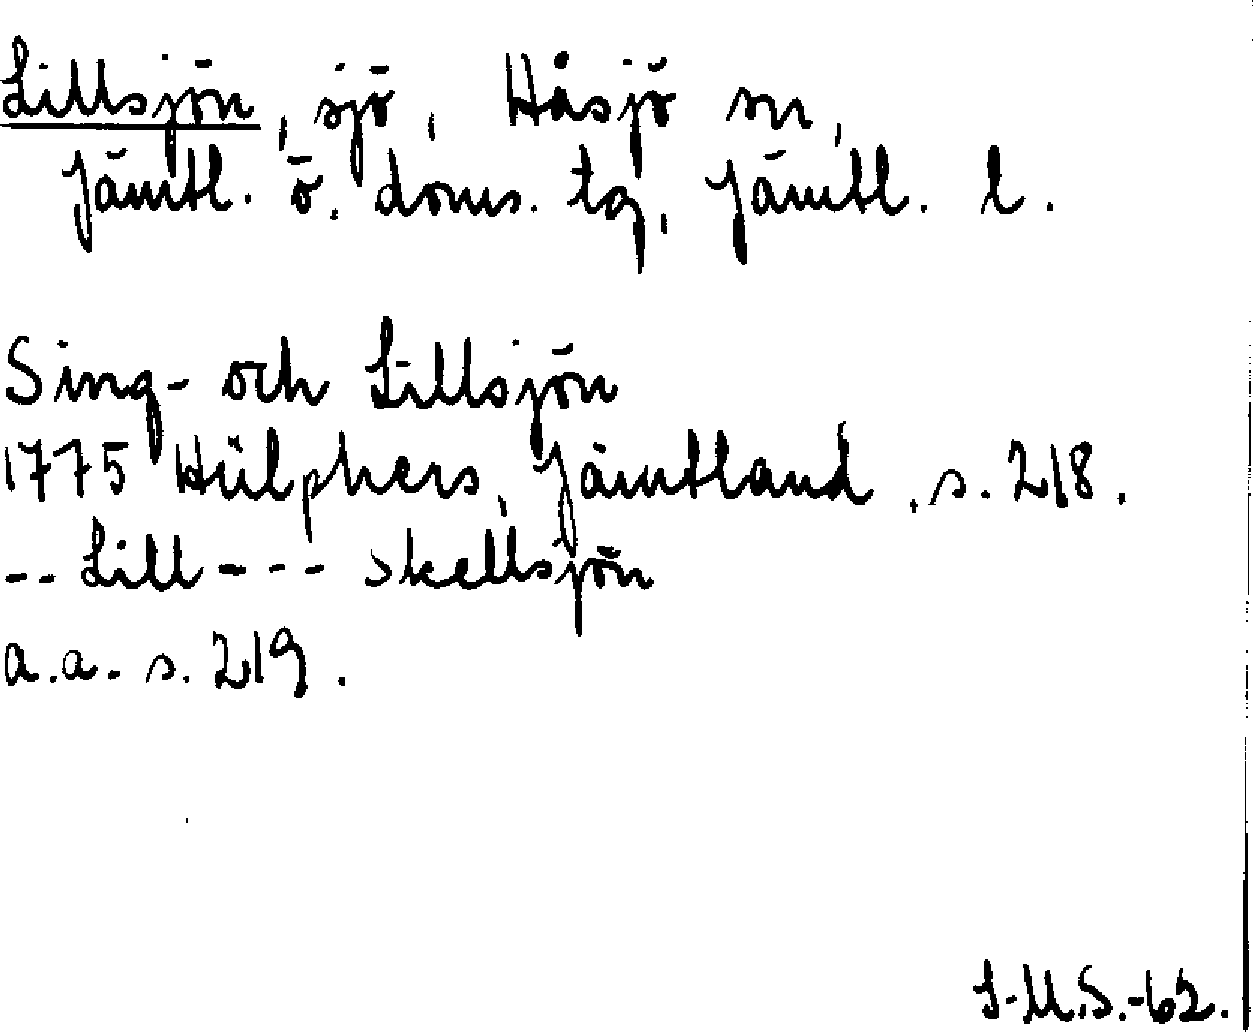 Lillsjön, sjö, Håsjö sn,
Jämtl. ö. doms. tg, Jämtl. l.
Sing- och Lillsjön
1775 Hülphers, Jämtland, s. 218.
-- Lill --- skellsjön
a.a. s. 219.
I.M.S.-62.